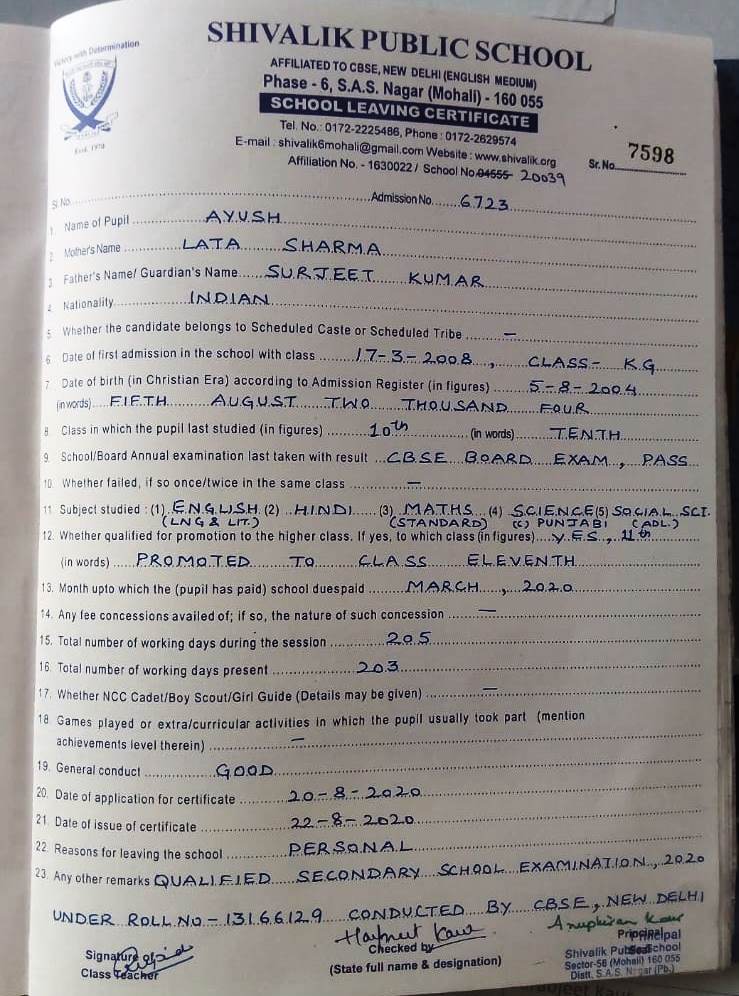 Victory with Determination
SHIVALIK PUBLIC SCHOOL
AFFILIATED TO CBSE, NEW DELHI (ENGLISH MEDIUM)
Phase - 6, S.A.S. Nagar (Mohali) - 160 055
SCHOOL LEAVING CERTIFICATE
Tel. No.: 0172-2225486, Phone : 0172-2629574
E-mail : shivalik6mohali@gmail.com Website : www.shivalik.org
Affiliation No. - 1630022 / School No. 04555 20039
Estd. 1970
Sr. No. 7598
Sl. No. Admission No. 6723
1. Name of Pupil AYUSH
2. Mother's Name LATA SHARMA
3. Father's Name/ Guardian's Name SURJEET KUMAR
4. Nationality INDIAN
5. Whether the candidate belongs to Scheduled Caste or Scheduled Tribe —
6. Date of first admission in the school with class 17-3-2008, CLASS- K.G
7. Date of birth (in Christian Era) according to Admission Register (in figures) 5-8-2004
(in words) FIFTH AUGUST TWO THOUSAND FOUR
8. Class in which the pupil last studied (in figures) 10th (in words) TENTH
9. School/Board Annual examination last taken with result CBSE BOARD EXAM, PASS
10. Whether failed, if so once/twice in the same class —
11. Subject studied : (1) ENGLISH (2) HINDI (3) MATHS (4) SCIENCE (5) SOCIAL SCI.
(LNG & LIT.) (STANDARD) (C) PUNJABI (ADL.)
12. Whether qualified for promotion to the higher class. If yes, to which class (in figures) YES, 11th
(in words) PROMOTED TO CLASS ELEVENTH
13. Month upto which the (pupil has paid) school duespaid MARCH, 2020
14. Any fee concessions availed of; if so, the nature of such concession —
15. Total number of working days during the session 205
16. Total number of working days present 203
17. Whether NCC Cadet/Boy Scout/Girl Guide (Details may be given) —
18. Games played or extra/curricular activities in which the pupil usually took part (mention
achievements level therein) —
19. General conduct GOOD
20. Date of application for certificate 20-8-2020
21. Date of issue of certificate 22-8-2020
22. Reasons for leaving the school PERSONAL
23. Any other remarks QUALIFIED SECONDARY SCHOOL EXAMINATION, 2020
UNDER ROLL NO - 13166129 CONDUCTED BY CBSE, NEW DELHI
Harpreet Kaur Anupkiran Kaur
Signature of Checked by Principal Principal
Class Teacher (State full name & designation) Shivalik Public School
Sector-56 (Mohali) 160 055
Distt. S.A.S. Nagar (Pb.)